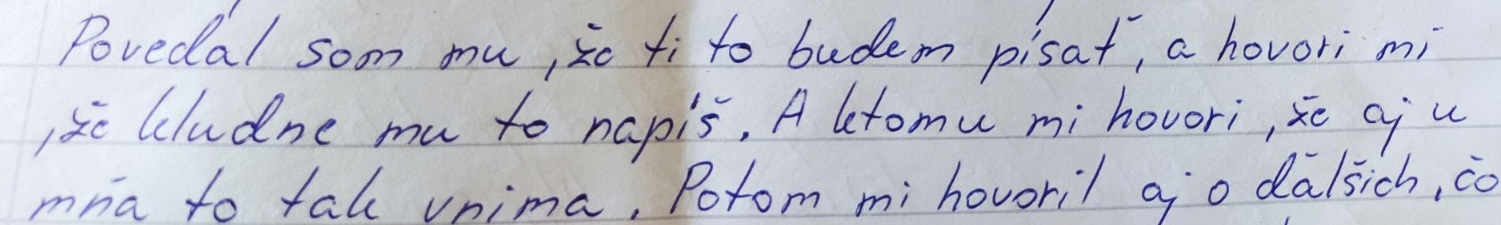 Povedal som mu, že ti to budem písať, a hovori mi
, že kludne mu to napíš. A ktomu mi hovori, že aj u
mňa to tak vnima. Potom mi hovoril aj o dálšich, čo